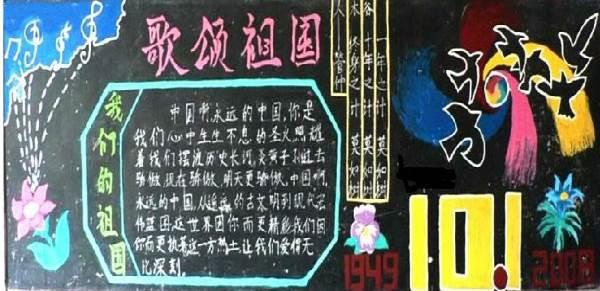 歌颂祖国
我们的祖国
中国啊永远的中国,你是
我们心中生生不息的圣火照耀
着我们摆渡历史长河,炎黄子孙过去
骄傲,现在骄傲,明天更骄傲,中国啊,
永远的中国,从遥远的古文明到现代
伟蓝图,这世界因你而更精彩我们因
你而更执著这一方热土让我们爱得无
比深刻。
一年之计 莫如树
谷 十年之计 莫如树
木 终身之计 莫如树
人 管仲
1949
10.1
2008